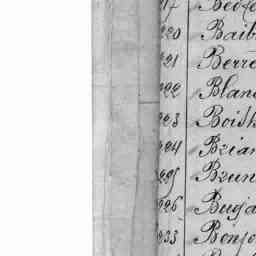 217 Bedfo
220 Baib
221 Berre
222 Blanc
223 Boish
224 Brian
225 Brun
226 Buga
233 Benjo